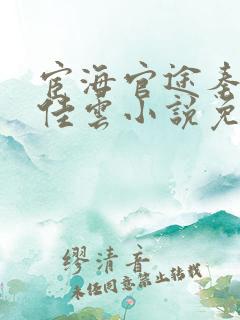 宦海官途秦
佳云小说免
缪清音
未经同意禁止转载